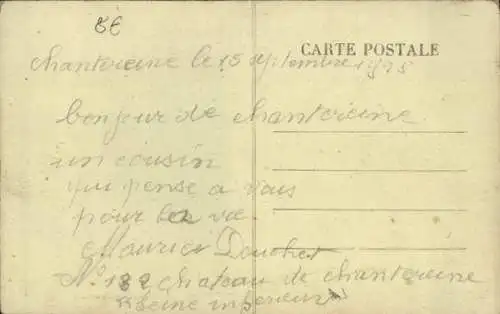 8€
CARTE POSTALE
chantereine le 15 septembre 1925
bonjour de chantereine
un cousin
qui pense a vous
pour la vie
Maurice Douchet
N° 182 chateau de chantereine
Seine inferieur